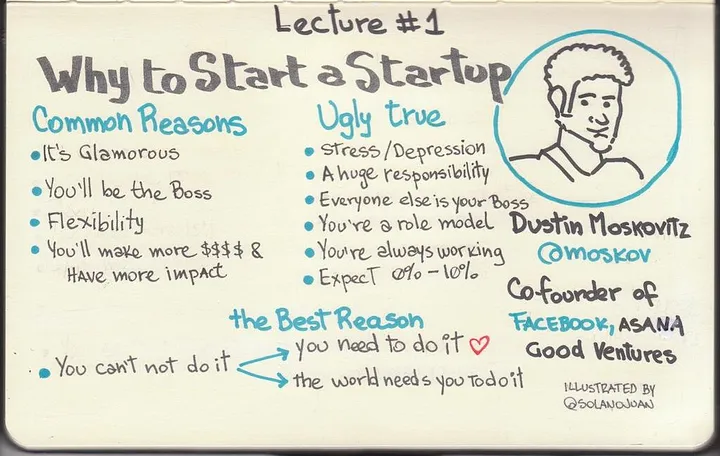 Lecture #1
Why to Start a Startup
Common Reasons
It's Glamorous
You'll be the Boss
Flexibility
You'll make more $$$$ &
HAVE more impAct
Ugly true
stress/Depression
A huge responsibility
Everyone else is your Boss
You're a role model
You're always working
ExpecT 0% - 10%
the Best Reason
You can't not do it
you need to do it
the world needs you To do it
Dustin Moskovitz
@moskov
Cofounder of
FACEBOOK, ASANA
Good Ventures
ILLUSTRATED BY
@SOLANOJUAN